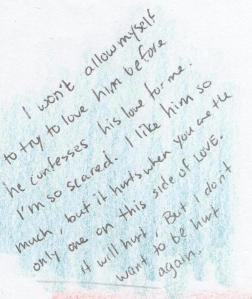 I won't allow myself
to try to love him before
he confesses his love for me.
I'm so scared. I like him so
much, but it hurts when you are the
only one on this side of LOVE.
it will hurt! But I don't
want to be hurt
again.